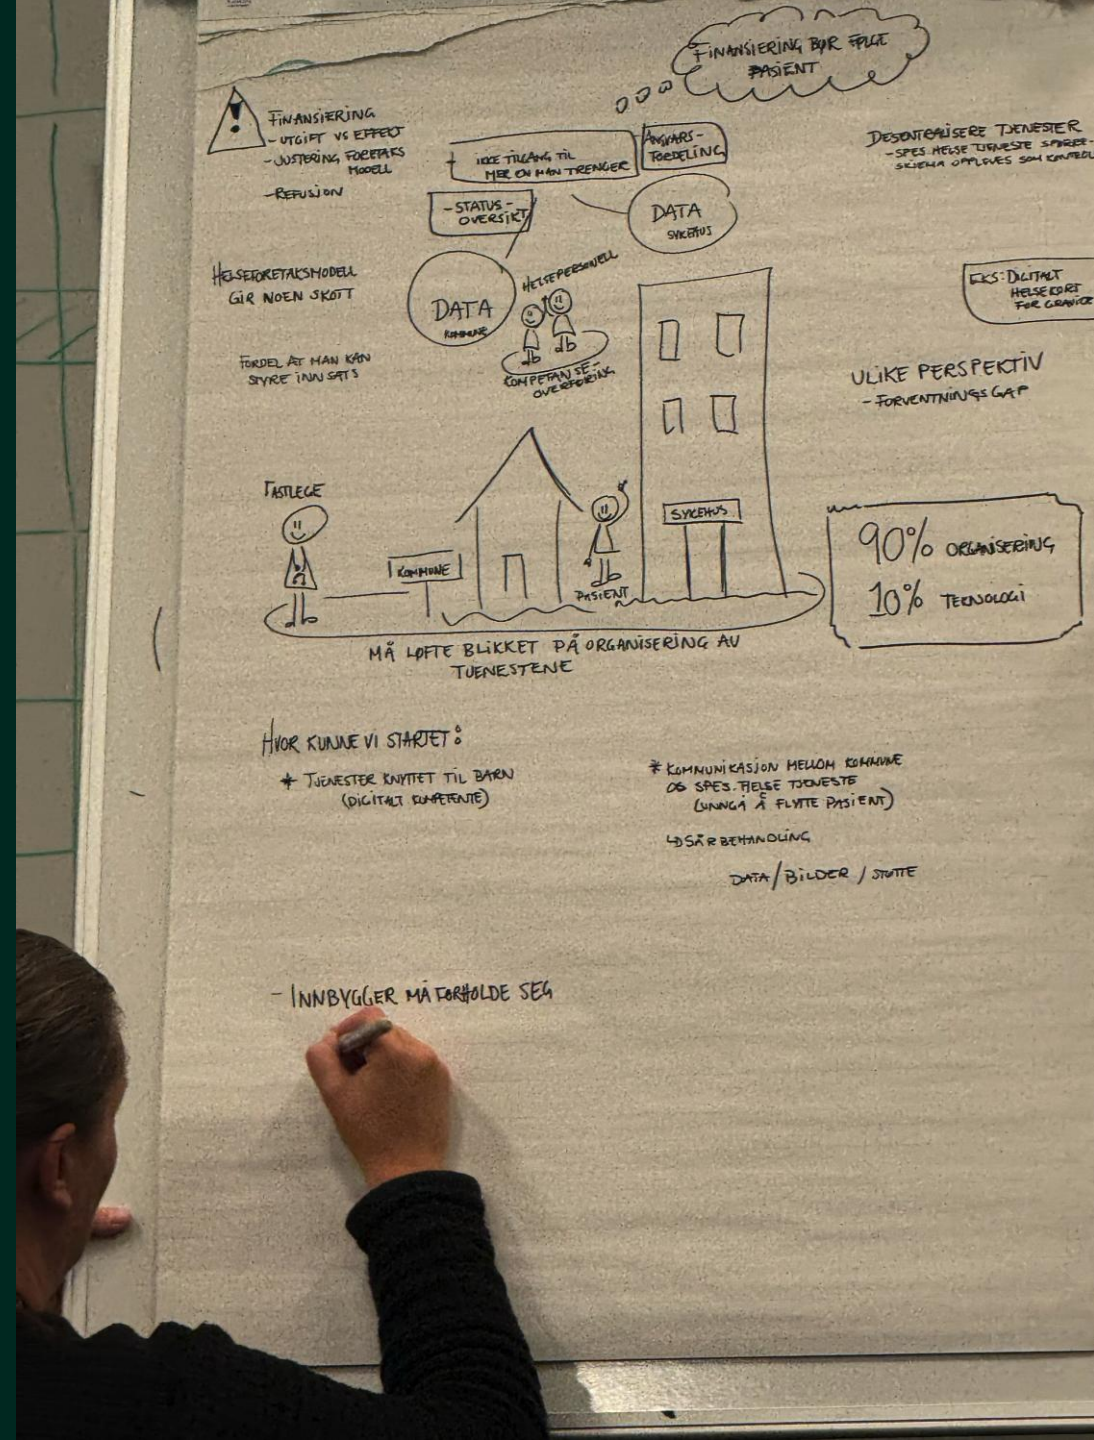 FINANSIERING BØR FØLGE
PASIENT
FINANSIERING
- UTGIFT VS EFFEKT
- JUSTERING FORETAKS
MODELL
- REFUSJON
IKKE TILGANG TIL
MER EN MAN TRENGER
ANSVARS-
FORDELING
- STATUS -
OVERSIKT
DATA
SYKEHUS
DESENTRALISERE TJENESTER
- SPES HELSE TJENESTE SPØRRE-
SKJEMA OPPLEVES SOM KONTROL
HELSEFORETAKSMODELL
GIR NOEN SKOTT
DATA
KOMMUNE
HELSEPERSONELL
KOMPETANSE-
OVERFØRING
EKS: DIGITALT
HELSEKORT
FOR GRAVIDE
FORDEL AT MAN KAN
STYRE INNSATS
ULIKE PERSPEKTIV
- FORVENTNINGSGAP
FASTLEGE
KOMMUNE
PASIENT
SYKEHUS
90% ORGANISERING
10% TEKNOLOGI
MÅ LØFTE BLIKKET PÅ ORGANISERING AV
TJENESTENE
HVOR KUNNE VI STARTET:
* TJENESTER KNYTTET TIL BARN
(DIGITALT KOMPETENTE)
* KOMMUNIKASJON MELLOM KOMMUNE
OG SPES. HELSE TJENESTE
(UNNGÅ Å FLYTTE PASIENT)
↳ SÅRBEHANDLING
DATA / BILDER / STØTTE
- INNBYGGER MÅ FORHOLDE SEG